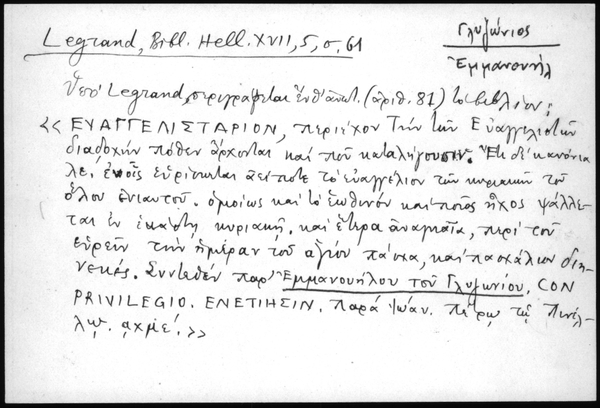 Legrand, Bibl. Hell. XVII, 5, σ, 61
Γλυζώνιος
Ἐμμανουήλ
Ὑπὸ Legrand, περιγράφεται ἐνθ' ἀνωτ. (ἀριθ. 81) τὸ βιβλίον:
<< ΕΥΑΓΓΕΛΙΣΤΑΡΙΟΝ, περιέχον τὴν τῶν Εὐαγγελιστῶν
διαδοχὴν πόθεν ἄρχονται καὶ ποῦ καταλήγουσιν. Ἔτι δὲ κανόνια
λε, ἐν οἷς εὑρίσκεται ἀείποτε τὸ εὐαγγέλιον τῶν κυριακῶν τοῦ
ὅλου ἐνιαυτοῦ. ὁμοίως καὶ τὸ ἑωθινὸν καὶ ποῖος ἦχος ψάλλε-
ται ἐν ἑκάστῃ κυριακῇ. καὶ ἕτερα ἀναγκαῖα, περὶ τοῦ
εὑρεῖν τὴν ἡμέραν τοῦ ἁγίου πάσχα, καὶ πασχάλιον διη-
νεκές. Συντεθὲν παρ' Ἐμμανουήλου τοῦ Γλυζωνίου. CON
PRIVILEGIO. ΕΝΕΤΙΗΣΙΝ. παρὰ Ἰωάν. Πέτρῳ τῷ Πινέλ-
λῳ. ͵αχμε'. >>